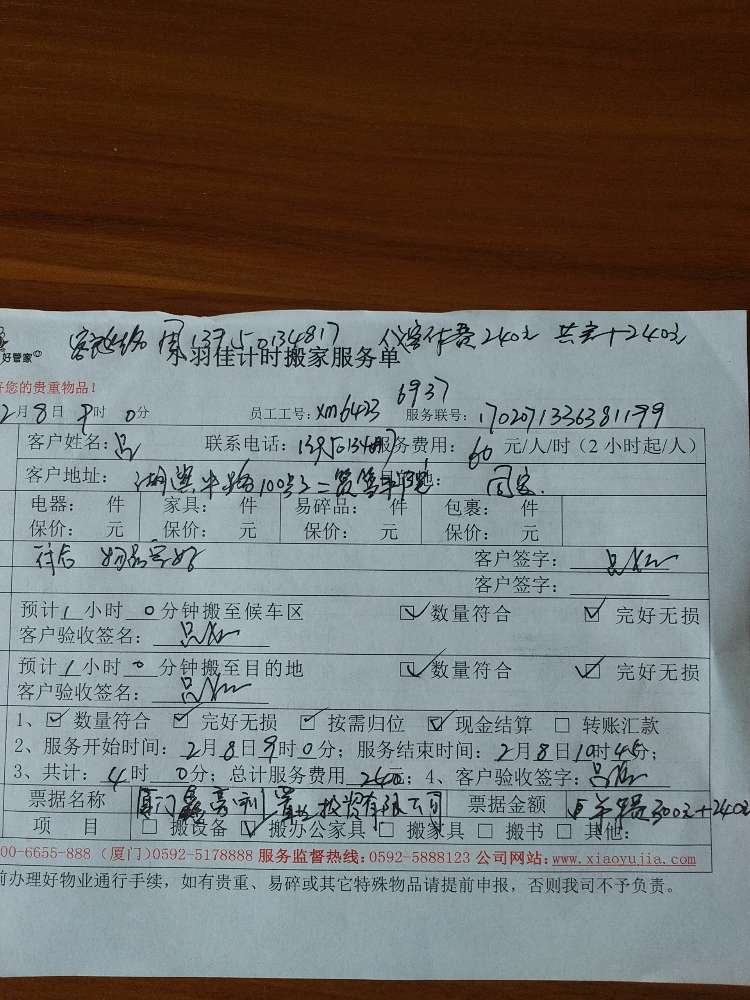 周13950134817 240元 共 240元
好管家 小羽佳计时搬家服务单
好您的贵重物品！
6937
2月8日9时0分 员工工号：xm6423 服务联号：1702071336381199
客户姓名：吕 联系电话：服务费用：60元/人/时（2小时起/人）
客户地址：100号 目的地：同客
电器： 件 家具： 件 易碎品： 件 包裹： 件
保价： 元 保价： 元 保价： 元 保价： 元
物品完好 客户签字：
客户签字：
预计1小时0分钟搬至候车区 数量符合 完好无损
客户验收签名：
预计1小时0分钟搬至目的地 数量符合 完好无损
客户验收签名：
1、数量符合 完好无损 按需归位 现金结算 转账汇款
2、服务开始时间：2月8日9时0分；服务结束时间：2月8日10时45分；
3、共计：4时0分；总计服务费用240元；4、客户签字：
票据名称 厦门 投资有限公司 票据金额 300元+240元
项 目 搬设备 搬办公家具 搬家具 搬书 其他：
00-6655-888（厦门）0592-5178888 服务监督热线：0592-5888123 公司网站：www.xiaoyujia.com
前办理好物业通行手续，如有贵重、易碎或其它特殊物品请提前申报，否则我司不予负责。